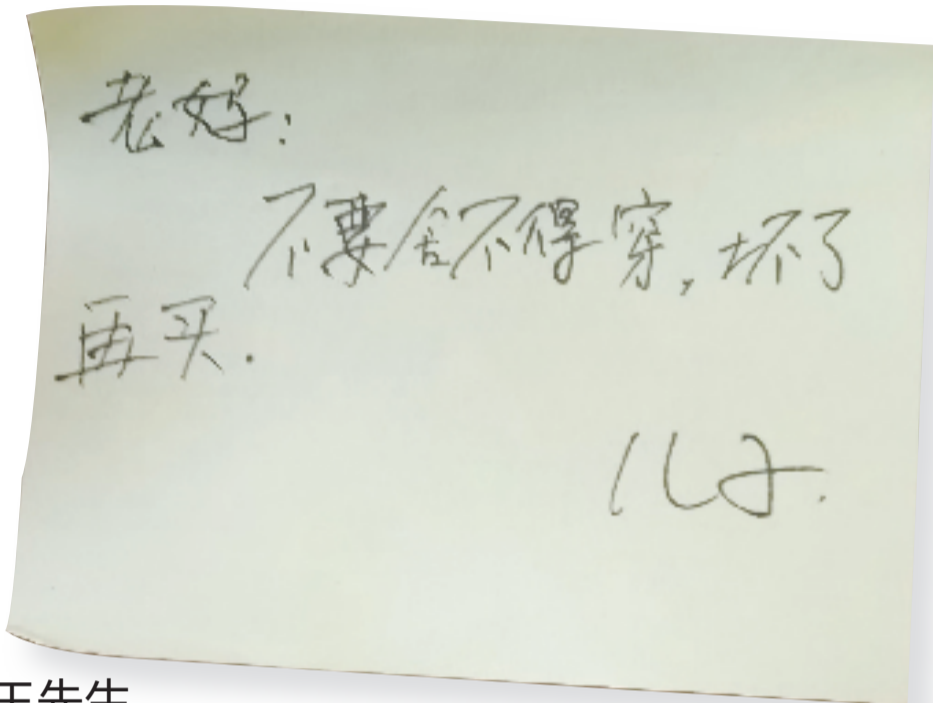 老妈:
不要舍不得穿,坏了
再买.
儿子.
王先生